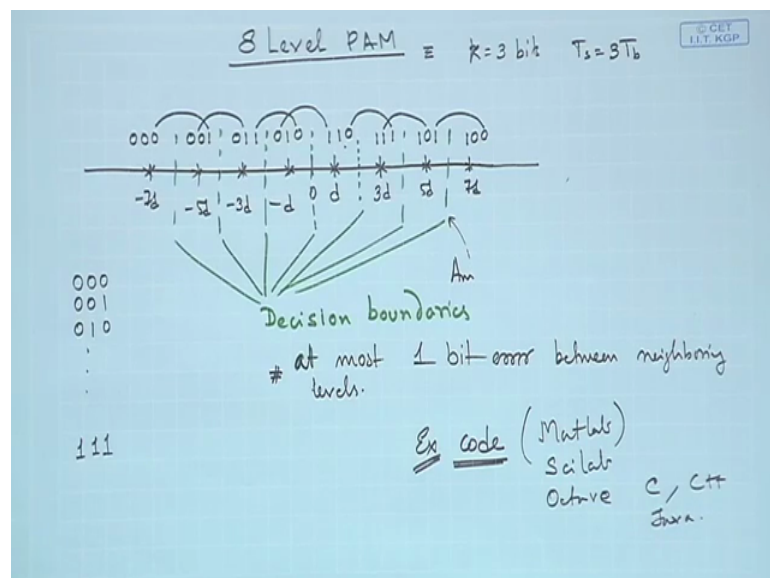 © CET
I.I.T. KGP
8 Level PAM ≡ k=3 bit Ts=3Tb
000 001 011 010 110 111 101 100
-7d -5d -3d -d 0 d 3d 5d 7d
Am
000
001
010
Decision boundaries
# at most 1 bit error between neighboring
levels.
111
Ex code (Matlab)
Scilab
Octave C, C++
Java.